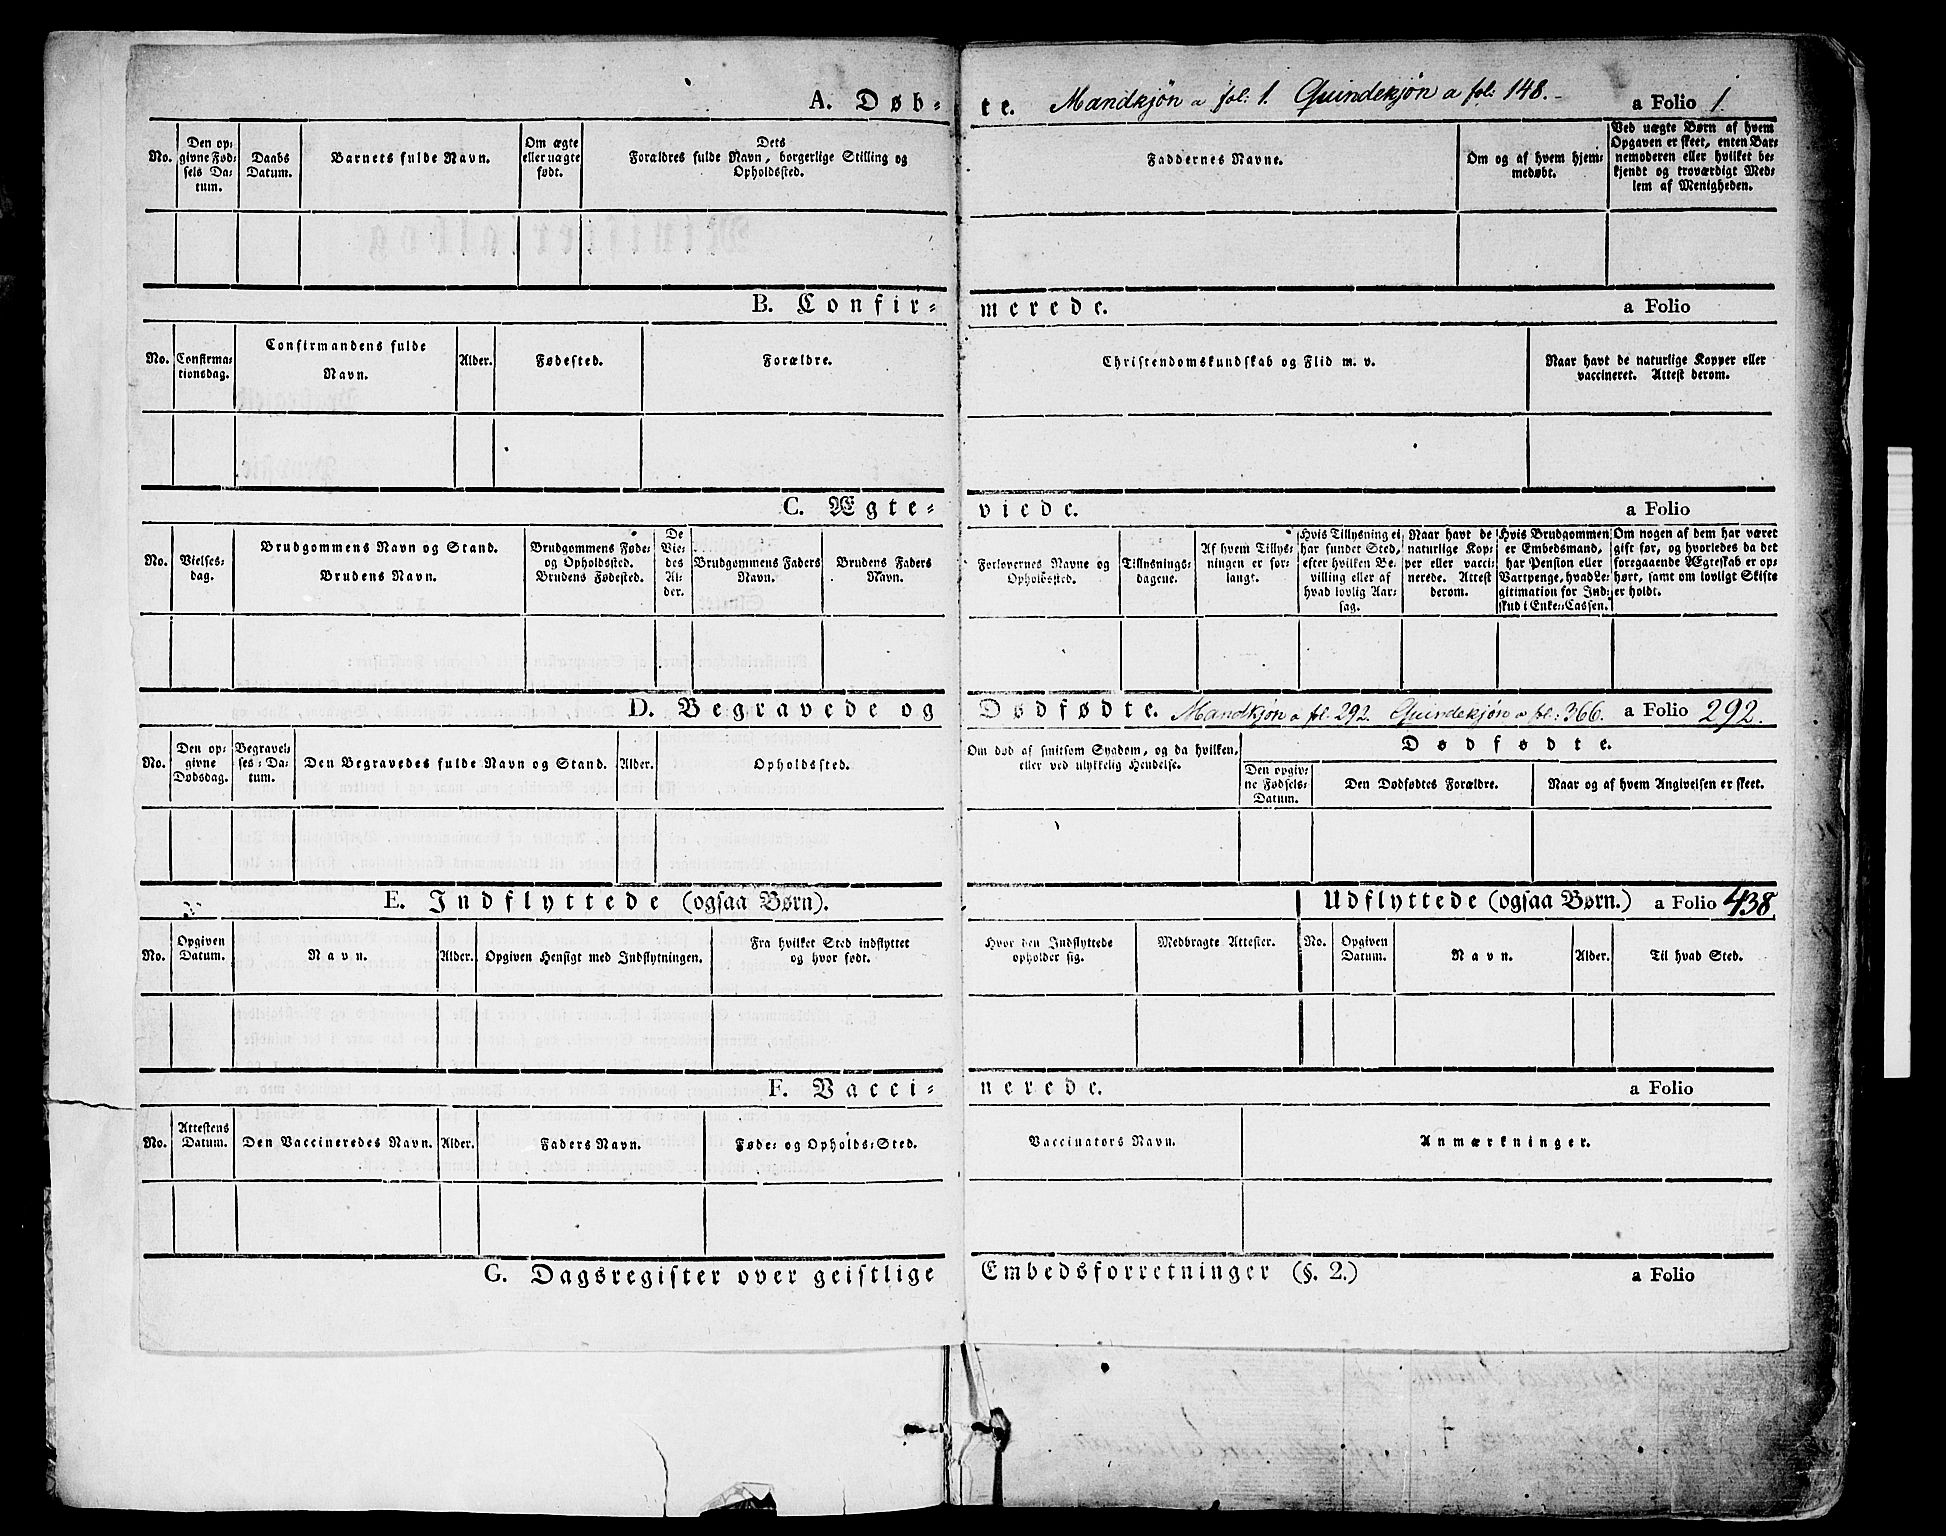 A. Døb- te. Mandkjøn a fol: 1. Quindekjøn a fol: 148.- a Folio 1.
No.
Den op:
givne Fød:
sels Da:
tum.
Daabs
Datum.
Barnets fulde Navn.
Om ægte
eller uægte
født.
Dets
Forældres fulde Navn, borgerlige Stilling og
Opholdssted.
Faddernes Navne.
Om og af hvem hjem:
medøbt.
Ved uægte Børn af hvem
Opgaven er skeet, enten Bar:
nemoderen eller hvilket be:
kjendt og troværdigt Med:
lem af Menigheden.
B. Confir- merede. a Folio
No.
Confirma:
tionsdag.
Confirmandens fulde
Navn.
Alder.
Fødested.
Forældre.
Christendomskundskab og Flid m. v.
Naar havt de naturlige Kopper eller
vaccineret. Attest derom.
C. Ægte: viede. a Folio
No.
Vielses:
dag.
Brudgommens Navn og Stand.
Brudens Navn.
Brudgommens Føde:
og Opholdssted.
Brudens Fødested.
De
Vie:
des
Al:
der.
Brudgommens Faders
Navn.
Brudens Faders
Navn.
Forlovernes Navne og
Opholdssted.
Tillysnings:
dagene.
Af hvem Tillys:
ningen er for:
langt.
Hvis Tillysning ei
har fundet Sted,
efter hvilken Be:
villing eller af
hvad lovlig Aar:
sag.
Naar havt de
naturlige Kop:
per eller vacci:
nerede. Attest
derom.
Hvis Brudgommen
er Embedsmand,
har Pension eller
Vartpenge, hvad Le:
gitimation for Ind:
skud i Enke:Cassen.
Om nogen af dem har været
gift før, og hvorledes da det
foregaaende Ægteskab er op:
hørt, samt om lovligt Skifte
er holdt.
D. Begravede og Dødfødte. Mandkjøn a fol: 292. Quindekjøn a fol: 366. a Folio 292.
No.
Den op:
givne
Dødsdag.
Begravel:
ses: Da:
tum.
Den Begravedes fulde Navn og Stand.
Alder.
Opholdssted.
Om død af smitsom Sygdom, og da hvilken,
eller ved ulykkelig Hendelse.
Dødfødte.
Den opgiv:
ne Fødsels:
Datum.
Den Dødfødtes Forældre.
Naar og af hvem Angivelsen er skeet.
E. Indflyttede (ogsaa Børn). Udflyttede (ogsaa Børn.) a Folio 438.
No.
Opgiven
Datum.
Navn.
Alder.
Opgiven Hensigt med Indflytningen.
Fra hvilket Sted indflyttet
og hvor født.
Hvor den Indflyttede
opholder sig.
Medbragte Attester.
No.
Opgiven
Datum.
Navn.
Alder.
Til hvad Sted.
F. Vacci- nerede. a Folio
No.
Attestens
Datum.
Den Vaccineredes Navn.
Alder.
Faders Navn.
Føde: og Opholds:Sted.
Vaccinators Navn.
Anmærkninger.
G. Dagsregister over geistlige Embedsforretninger (§. 2.) a Folio